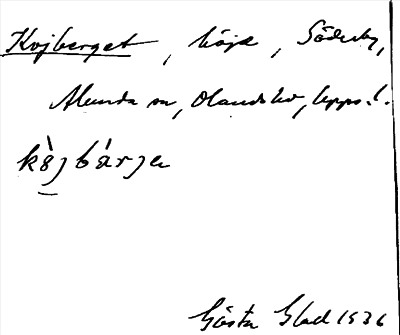 Kojberget, höjd, Söderby,
Alunda sn, Olands hd, Upps. l.
kòjbárjen
Gösta Glad 1936